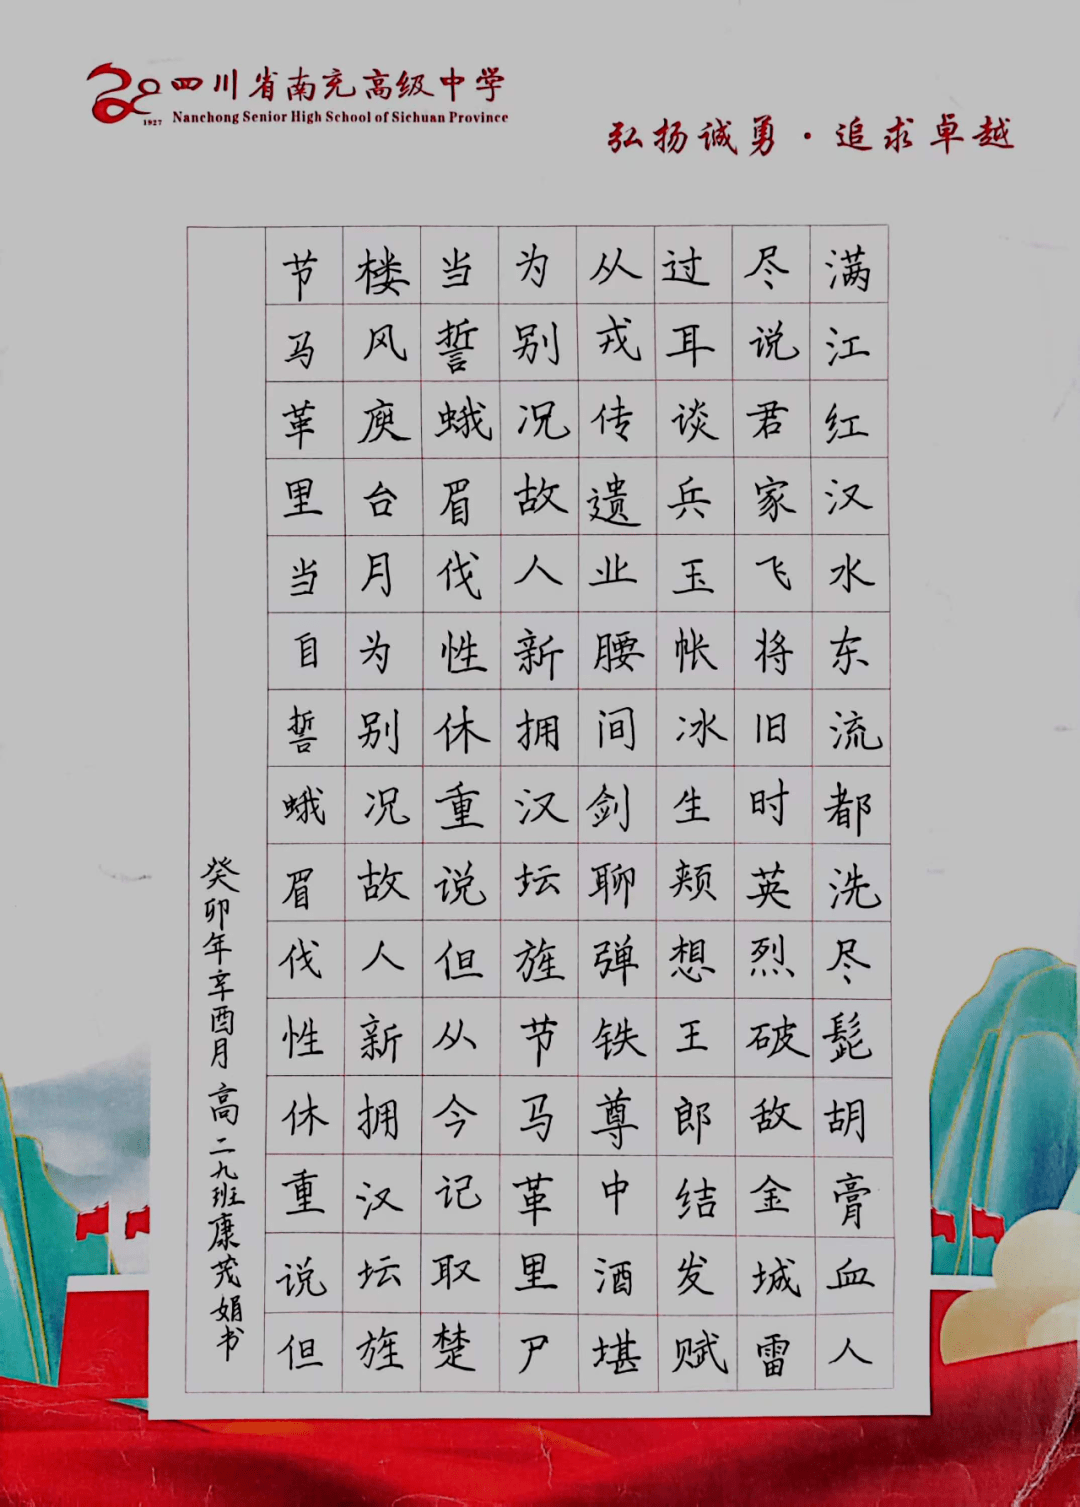 四川省南充高级中学
1927 Nanchong Senior High School of Sichuan Province
弘扬诚勇·追求卓越
满江红汉水东流都洗尽髭胡膏血人
尽说君家飞将旧时英烈破敌金城雷
过耳谈兵玉帐冰生颊想王郎结发赋
从戎传遗业腰间剑聊弹铁尊中酒堪
为别况故人新拥汉坛旌节马革里尸
当誓蛾眉伐性休重说但从今记取楚
楼风庾台月为别况故人新拥汉坛旌
节马革里当自誓蛾眉伐性休重说但
癸卯年辛酉月 高二九班康茂娟书